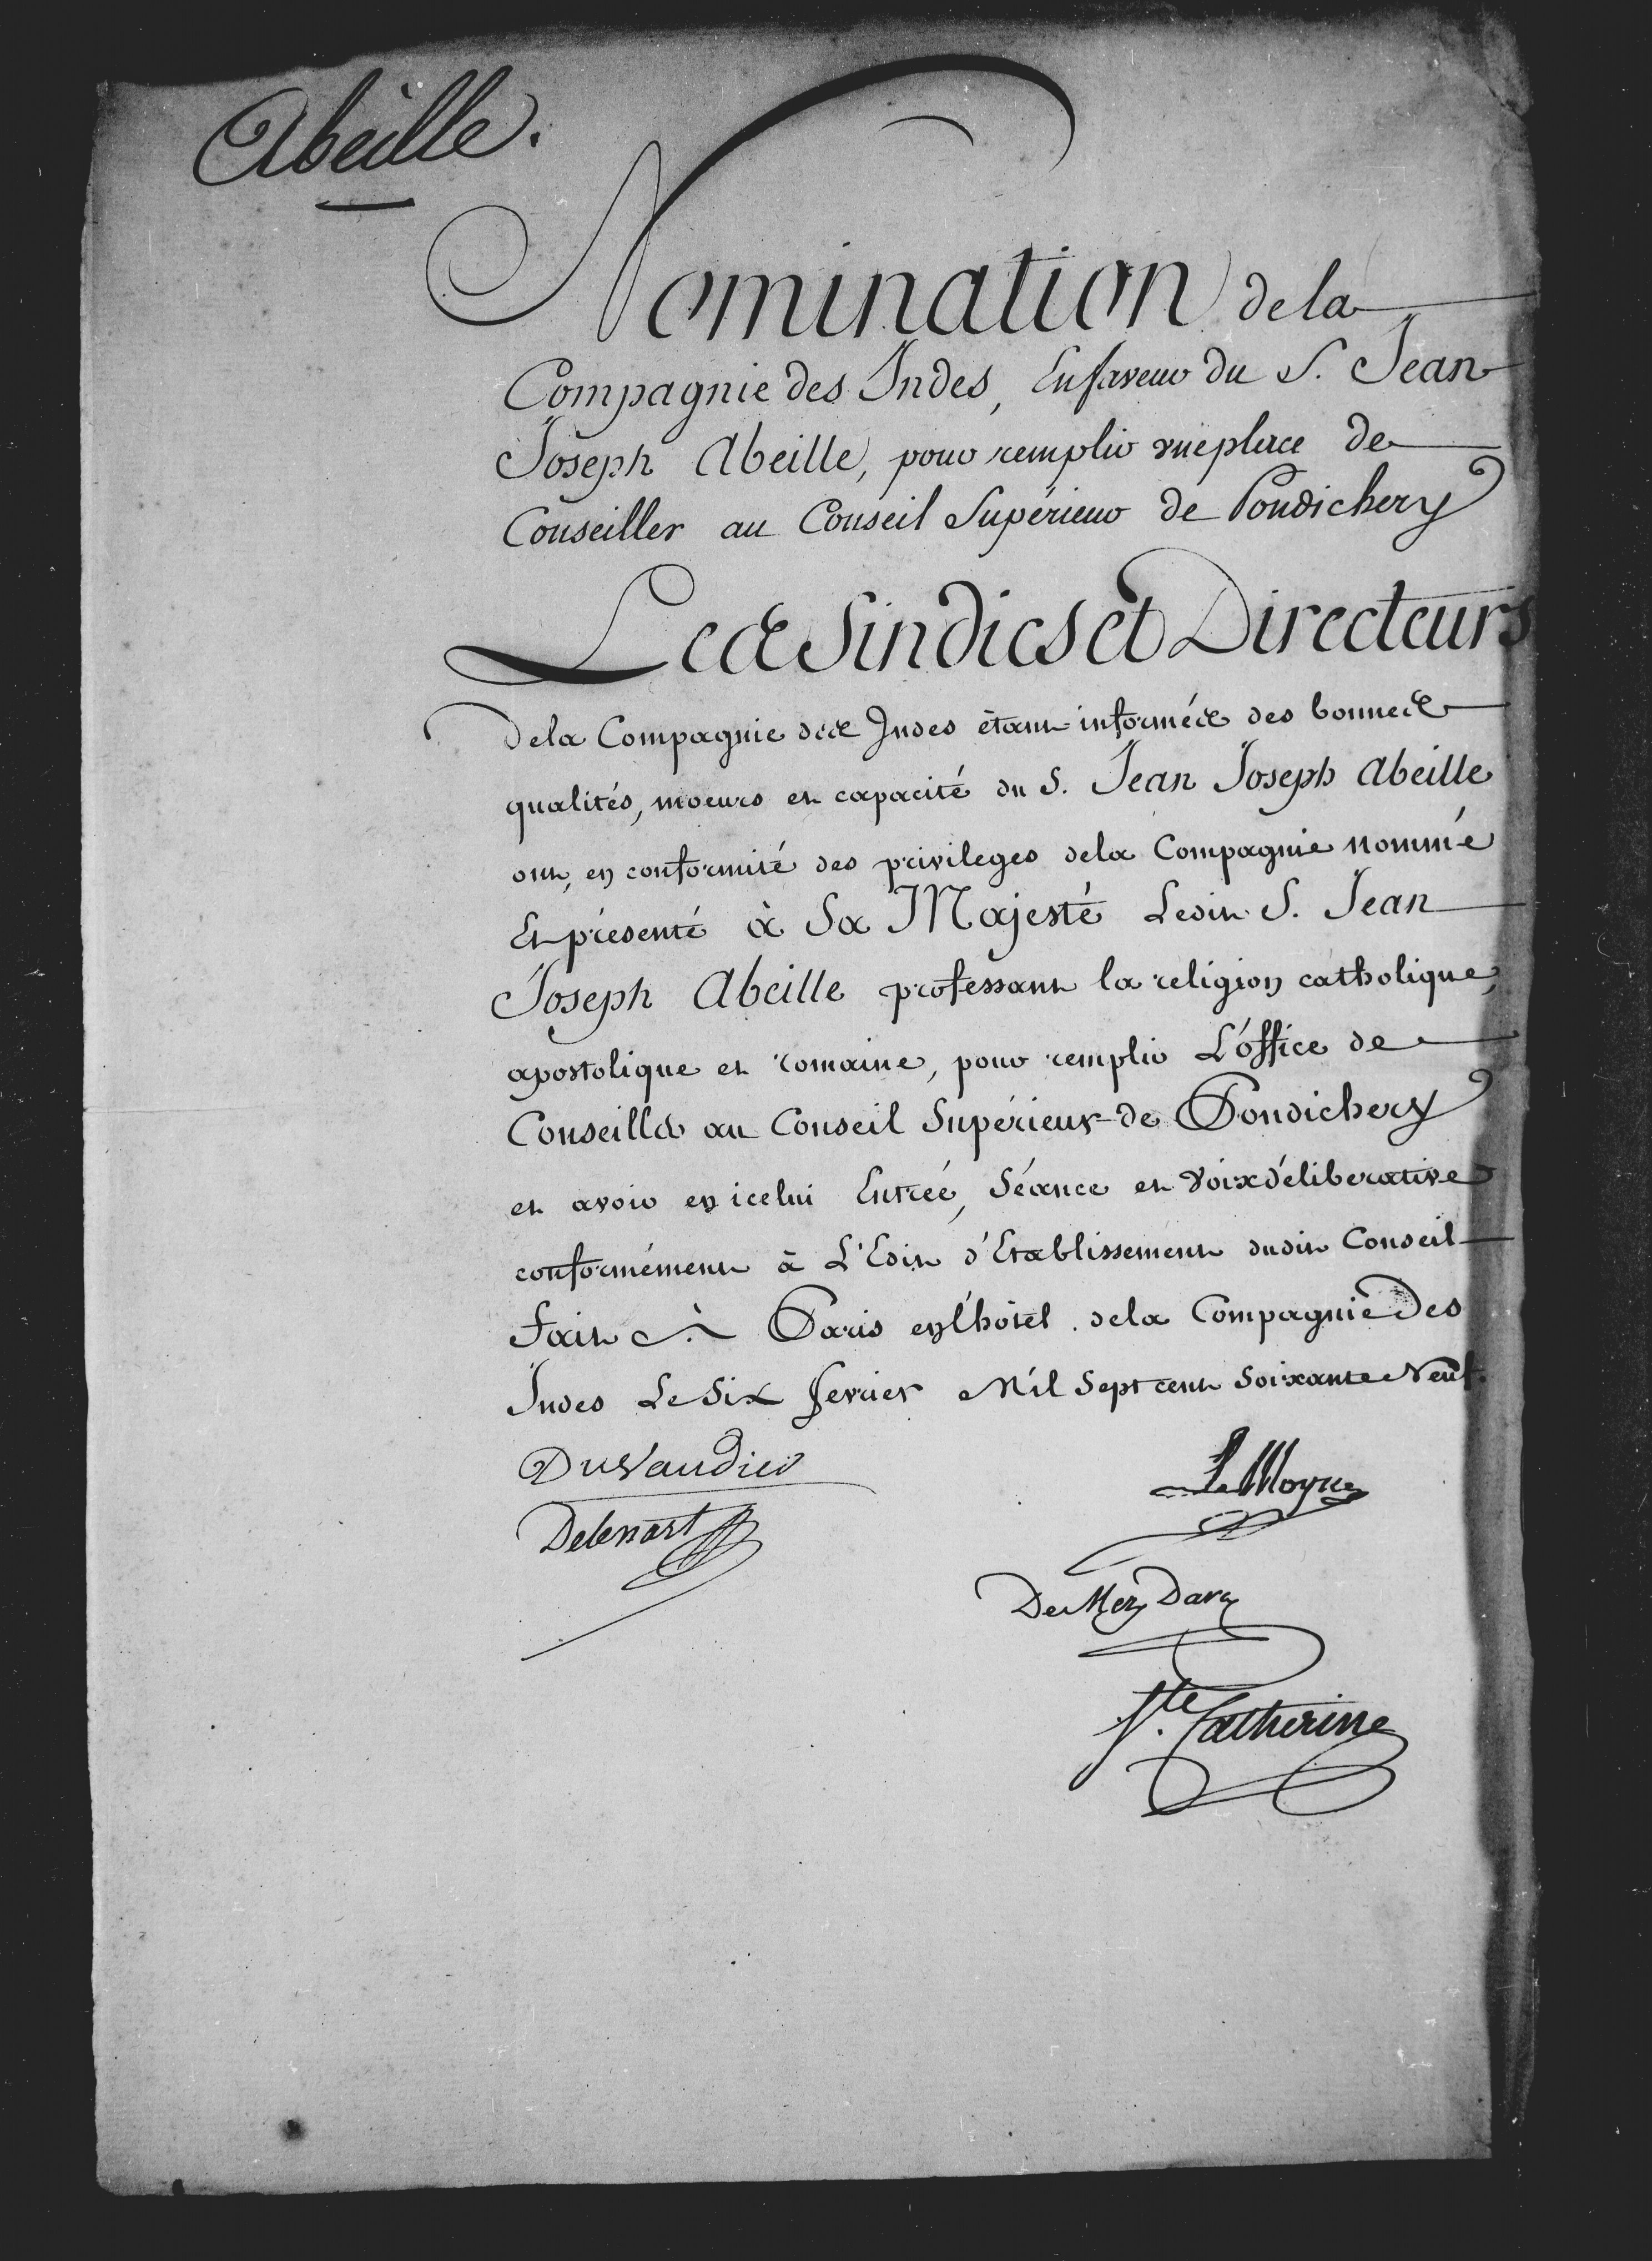 Abeille.
Nomination de la
Compagnie des Indes, En faveur du S. Jean
Joseph Abeille, pour remplir une place de
Conseiller au Conseil Supérieur de Pondichery
Les Sindics et Directeurs
De la Compagnie des Indes étant informés des bonnes
qualités, moeurs et capacité du S. Jean Joseph Abeille
ont, en conformité des privileges de la Compagnie nommé
Et présenté à Sa Majesté Ledit S. Jean
Joseph Abeille professant la religion catholique,
apostolique et romaine, pour remplir L'office de
Conseiller au Conseil Supérieur de Pondichery
et avoir en icelui Entrée, Séance et Voix déliberative
conformément à L'Edit d'Etablissement dudit Conseil
fait à Paris en l'hôtel de la Compagnie Des
Indes Le Six fevrier Mil Sept cent Soixante Neuf.
DuVaudier
Le Moyne
Delessart
De Mery Darcy
Ste. Catherine